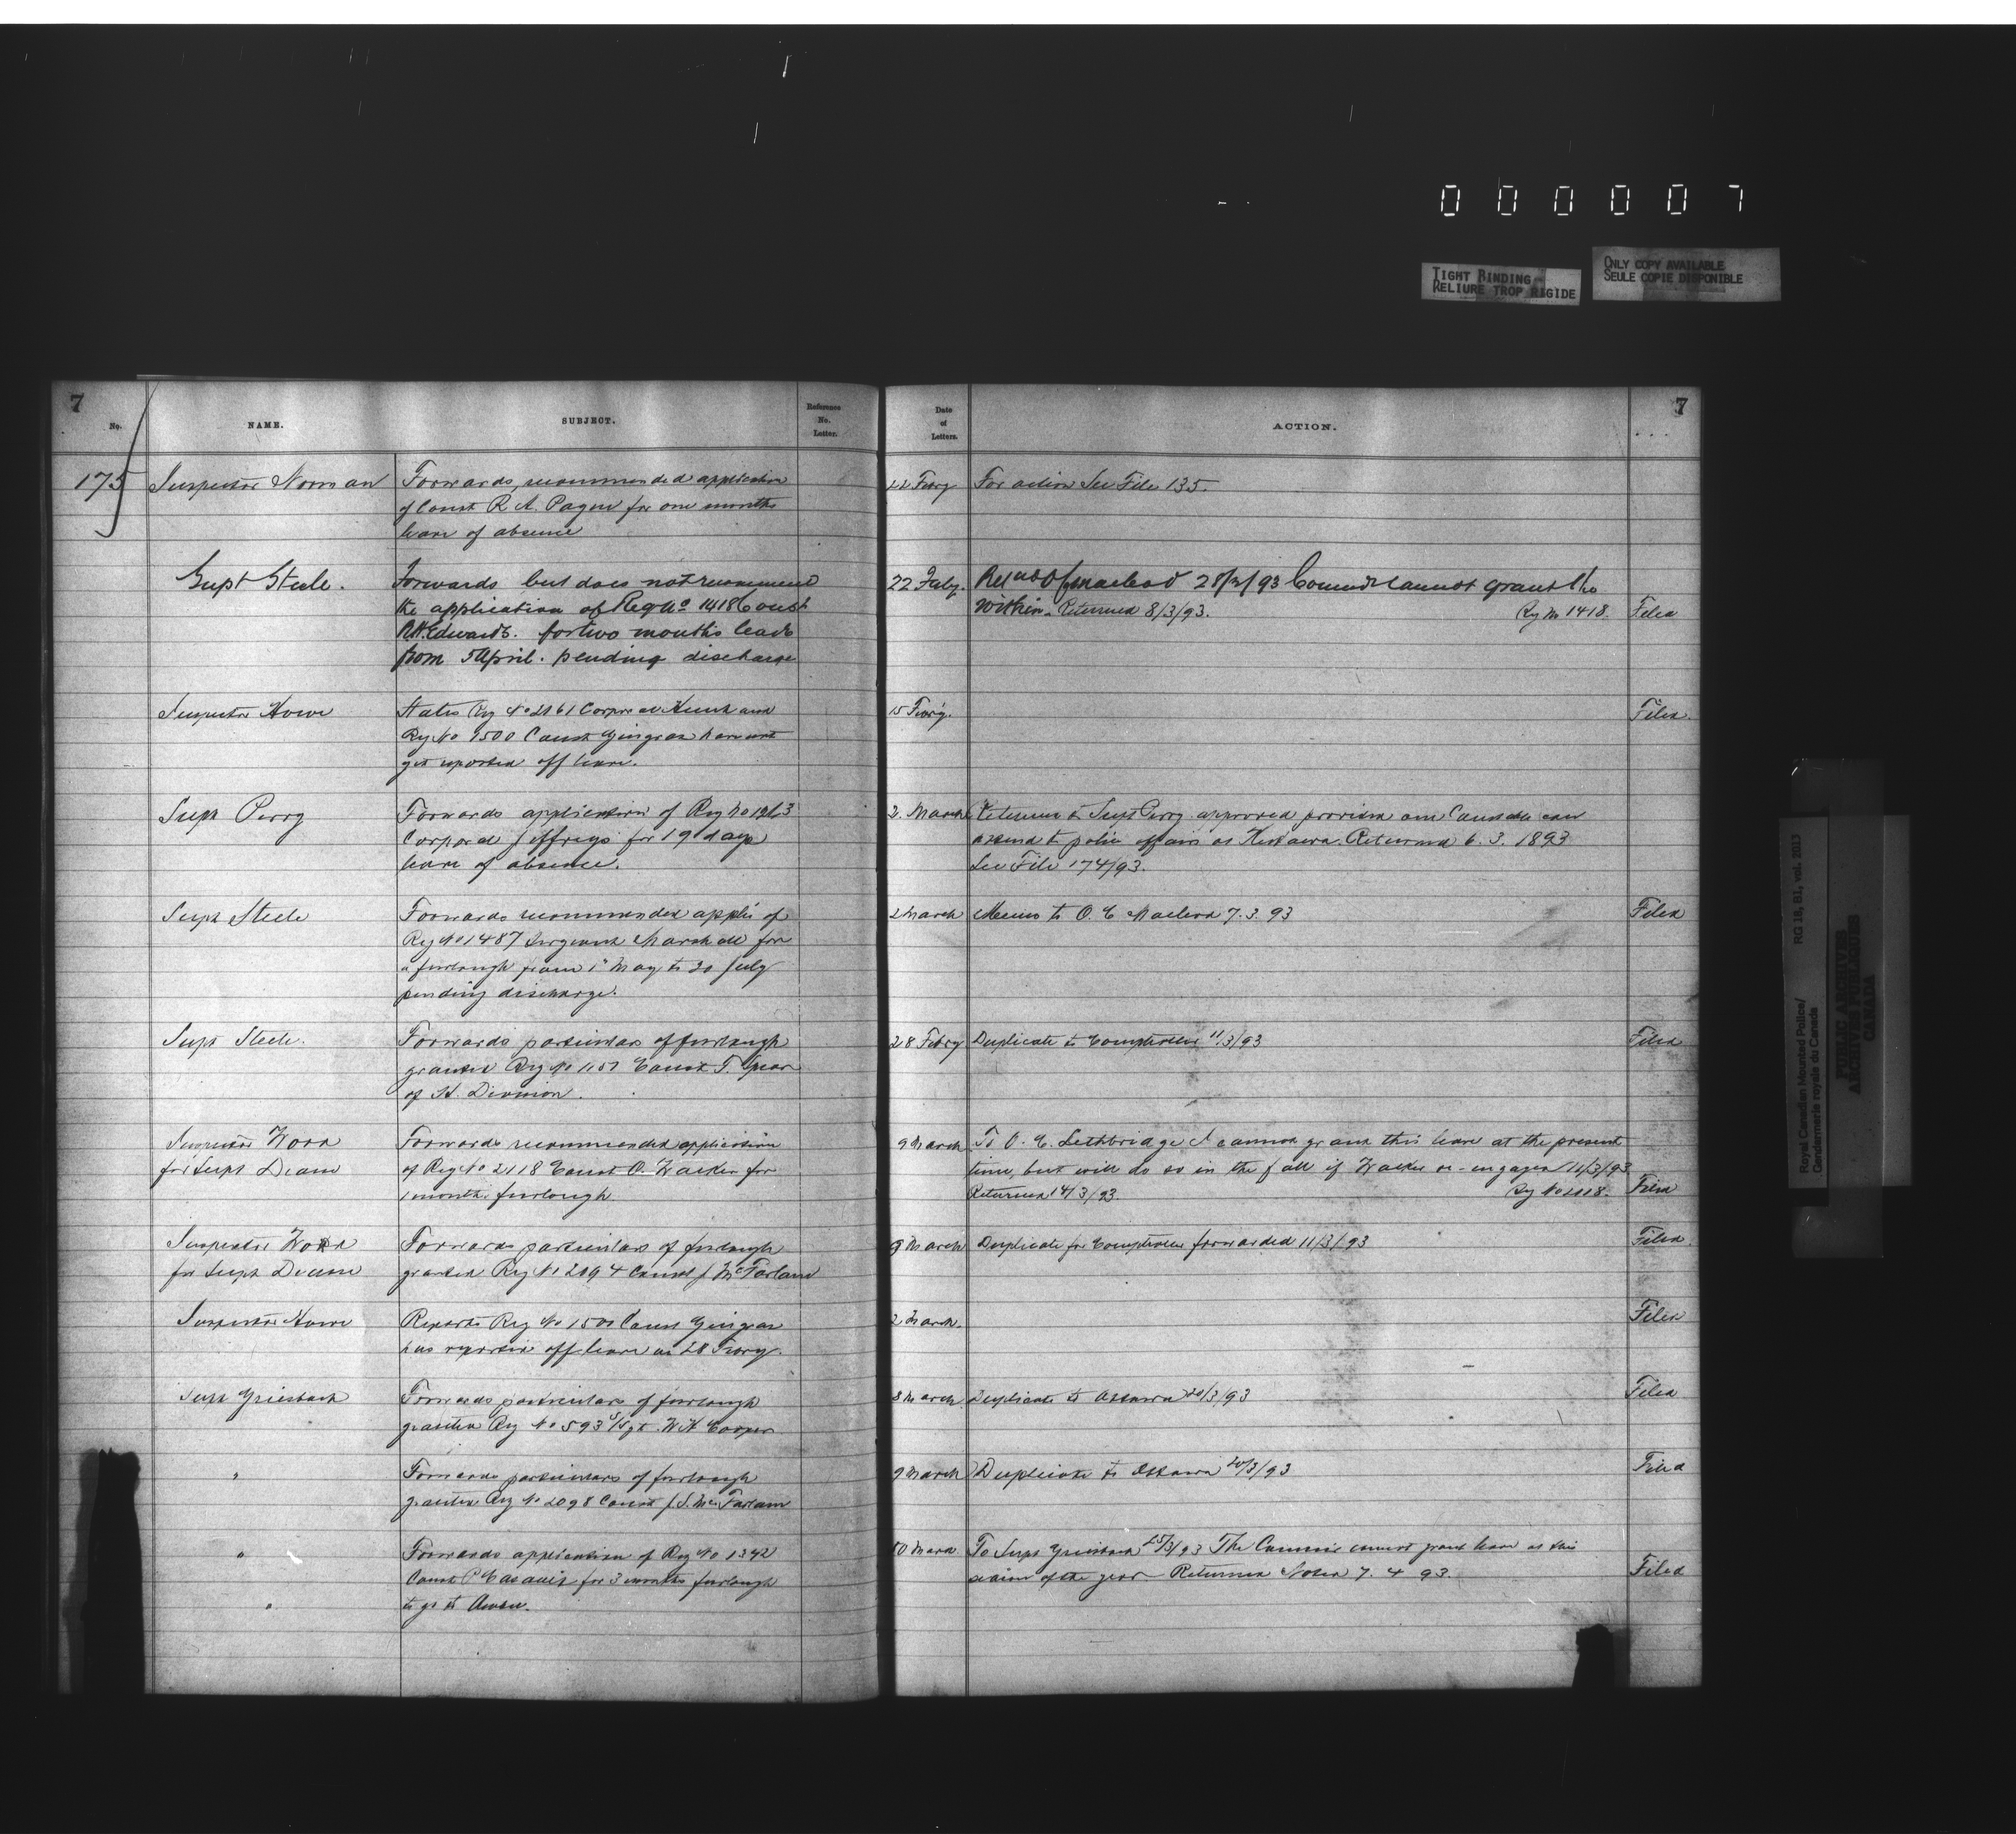 000007
TIGHT BINDING
RELIURE TROP RIGIDE
ONLY COPY AVAILABLE
SEULE COPIE DISPONIBLE
7
No.
NAME.
SUBJECT.
Reference
No.
Letter.
Date
of
Letters.
ACTION.
7
175
Inspector Norman
Forwards, recommended application
of Const R. A. Payne for one months
leave of absence
22 Febry
For action See File 135.
Supt Steele.
Forwards but does not recommend
the application of Reg No 1418 Const
R.H. Edwards. for two months leave
from 5 April. pending discharge
22 Feby.
Macleod 28/2/93 Commr cannot grant the
within. Returned 8/3/93.
Reg No 1418.
Filed
Inspector Howe
States Reg No 2161 Corporal Hunt and
Reg No 1500 Const Gingras have not
yet reported off leave.
15 Febry.
Filed.
Supt Perry
Forwards application of Reg No
Corporal Jeffreys for 19 days
leave of absence.
2. March
to Supt Perry approved provided one Constable can
attend to police affairs at Returned 6. 3. 1893
See File 174/93.
Supt Steele
Forwards recommended applic of
Reg No 1487 Sergeant Marshall for
a furlough from 1st May to 20 July
pending discharge.
2 March
Memo to O. C. Macleod 7. 3. 93
Filed
Supt Steele.
Forwards particulars of furlough
granted Reg No 1157 Const T.
of H. Division.
28 Febry
Duplicate to Comptroller 11/3/93
Filed
Inspector Wood
for Supt Deane
Forwards recommended application
of Reg No 2118 Const O. Walker for
1 months furlough
9 March
To O. C. Lethbridge I cannot grant this leave at the present
time, but will do so in the fall if Walker re-engages 11/3/93
Returned 14/3/93.
Reg No 2118.
Filed
Inspector Wood
for Supt Deane
Forwards particulars of furlough
granted Reg No 2194 Const J McFarland
9 March
Duplicate for Comptroller forwarded 11/3/93
Filed.
Inspector Howe
Reports Reg No 1500 Const Gingras
has reported off leave on 28 Febry.
2 March.
Filed
Supt Griesbach
Forwards particulars of furlough
granted Reg No 593 S/Sgt. W H Cooper
8 March
Duplicate to Ottawa 20/3/93
Filed
"
Forwards particulars of furlough
granted Reg No 2098 Const J. S. McFarlane
9 March
Duplicate to Ottawa 20/3/93
Filed
"
Forwards application of Reg No 1342
Const P for 3 months furlough
to go to
10 March
To Supt Griesbach 25/3/93 The Commis cannot grant leave at this
season of the year Returned Noted 7. 4 93.
Filed
"
Royal Canadian Mounted Police/
Gendarmerie royale du Canada
RG 18, B1, vol. 2013
PUBLIC ARCHIVES
ARCHIVES PUBLIQUES
CANADA